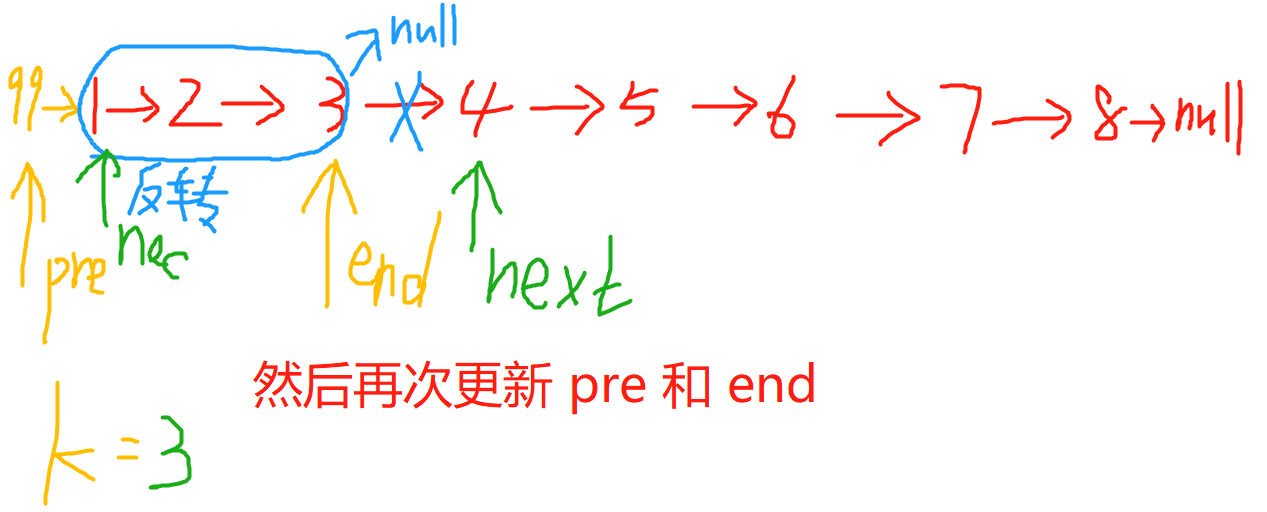 null
99 → 1 → 2 → 3 → 4 → 5 → 6 → 7 → 8 → null
反转
pre nec end next
然后再次更新 pre 和 end
k = 3